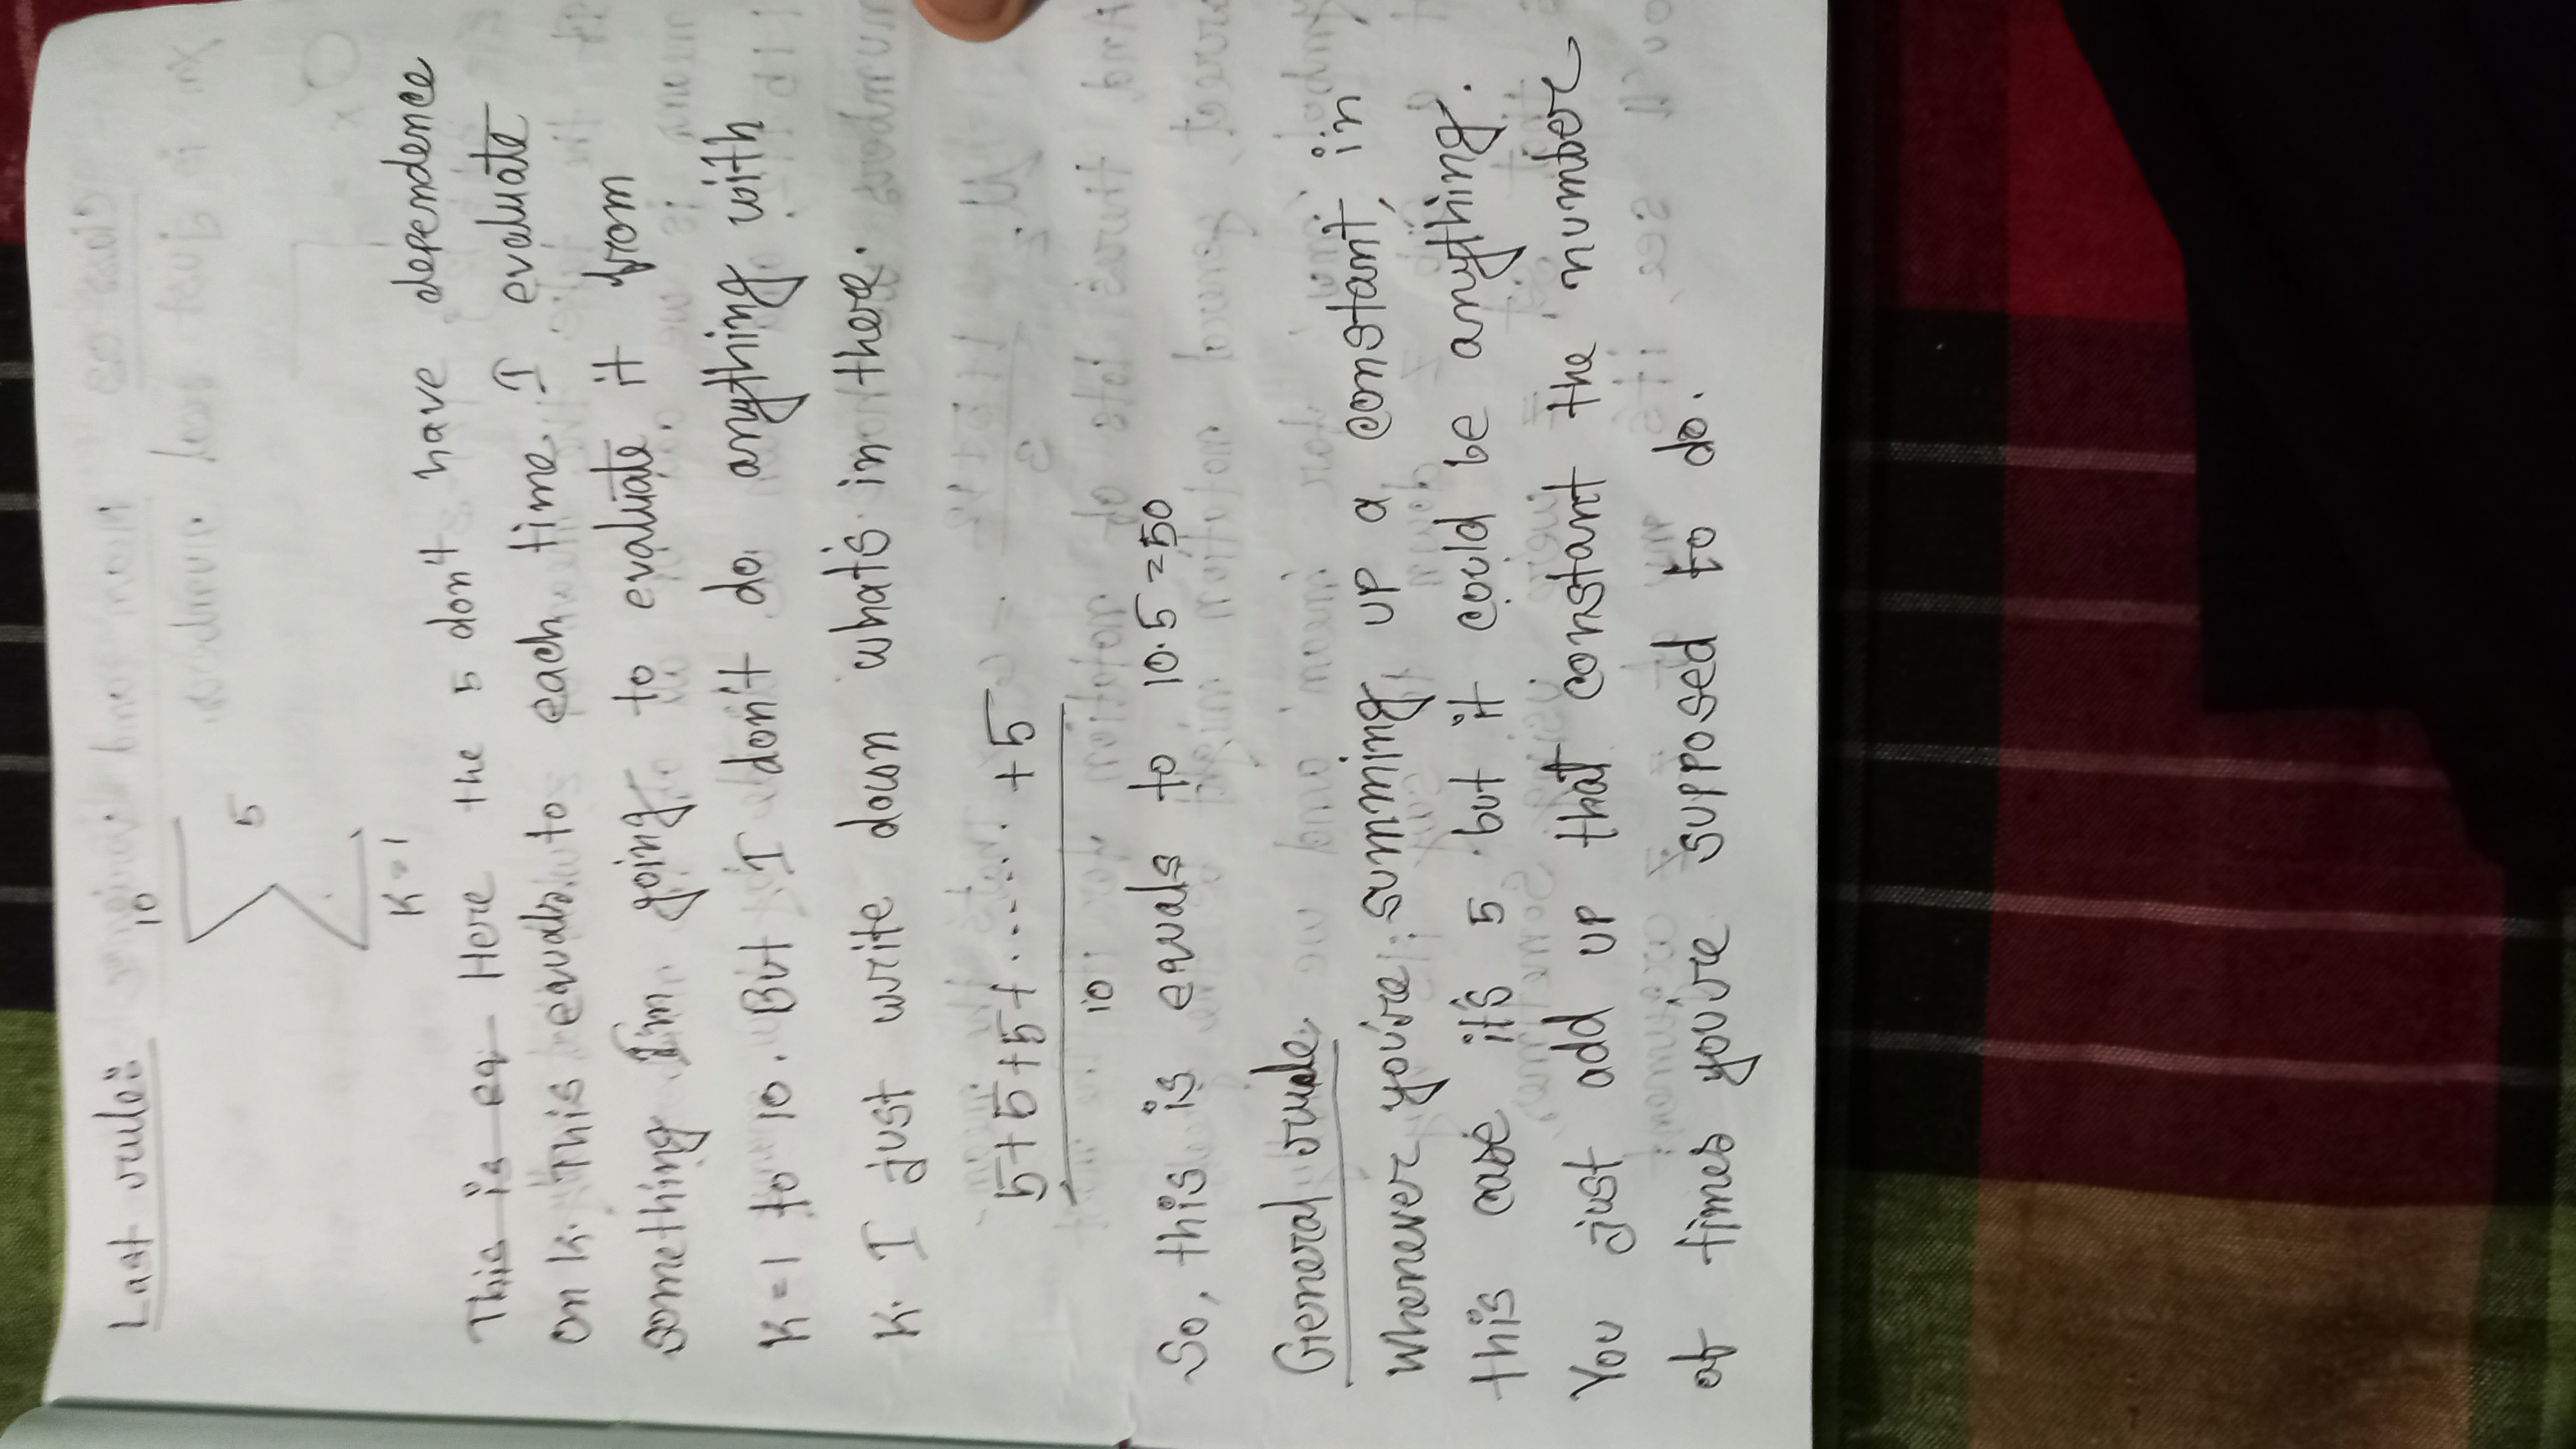 Last rule:
10
∑ 5
K=1
This is eq Here the 5 don't have dependence
on k. This equals to each time I evaluate
something I'm going to evaluate it from
K=1 to 10. But I don't do anything with
K. I just write down what's in there.
5+5+5+.......+5
10
So, this is equals to 10.5=50
General rule
Whenever you're summing up a constant, in
this case it's 5 but it could be anything.
You just add up that constant the number
of times you're supposed to do.